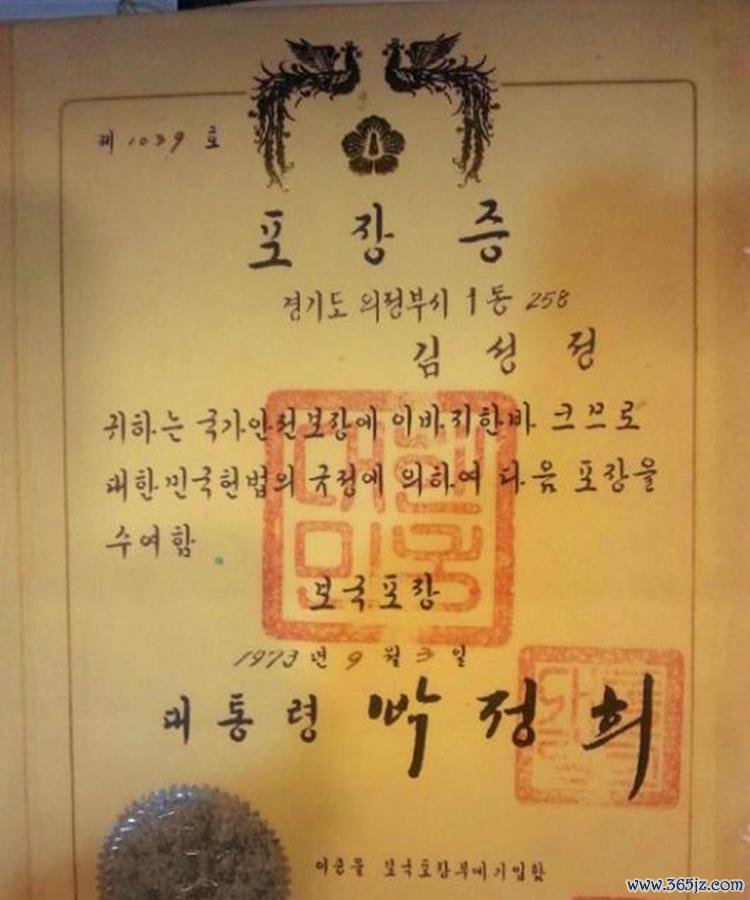 제 1039 호
포장증
경기도 의정부시 1동 258
김성정
귀하는 국가안전보장에 이바지한바 크므로
대한민국헌법의 규정에 의하여 다음 포장을
수여함
보국포장
1973년 9월 3일
대통령 박정희
대한민국
이준을 보국포장부에기입함
www.365jz.com